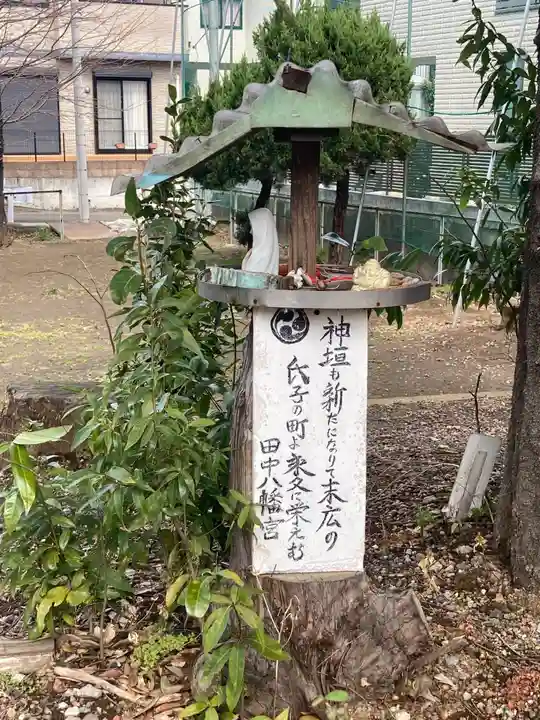 神垣も新たになりて末広の
氏子の町よ永久に栄えむ
田中八幡宮